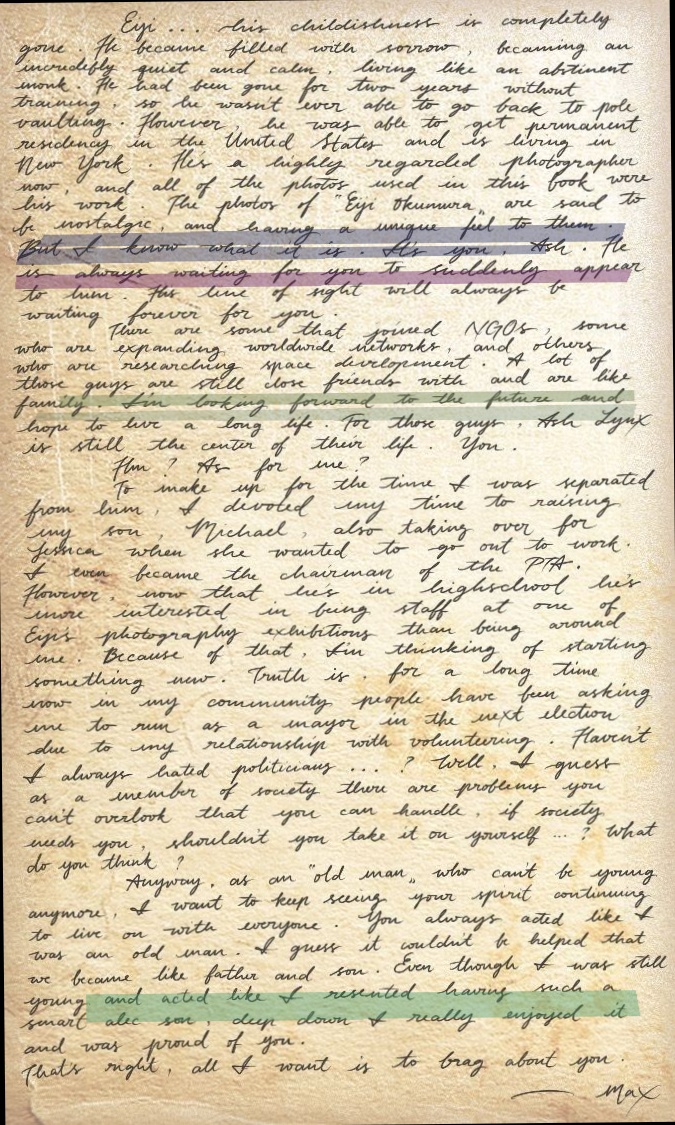 Eiji... his childishness is completely
gone. He became filled with sorrow, becoming an
incredibly quiet and calm, living like an abstinent
monk. He had been gone for two years without
training, so he wasn't ever able to go back to pole
vaulting. However, he was able to get permanent
residency in the United States and is living in
New York. He's a highly regarded photographer
now, and all of the photos used in this book were
his work. The photos of "Eiji Okumura" are said to
be nostalgic, and having a unique feel to them.
But I know what it is. It's you, Ash. He
is always waiting for you to suddenly appear
to him. His line of sight will always be
waiting forever for you.
There are some that joined NGOs, some
who are expanding worldwide networks, and others
who are researching space development. A lot of
those guys are still close friends with and are like
family. I'm looking forward to the future and
hope to live a long life. For those guys, Ash Lynx
is still the center of their life. You.
Hm? As for me?
To make up for the time I was separated
from him, I devoted my time to raising
my son, Michael, also taking over for
Jessica when she wanted to go out to work.
I even became the chairman of the PTA.
However, now that he's in highschool he's
more interested in being staff at one of
Eiji's photography exhibitions than being around
me. Because of that, I'm thinking of starting
something new. Truth is, for a long time
now in my community people have been asking
me to run as a mayor in the next election
due to my relationship with volunteering. Haven't
I always hated politicians...? Well, I guess
as a member of society there are problems you
can't overlook that you can handle, if society
needs you, shouldn't you take it on yourself...? What
do you think?
Anyway, as an "old man" who can't be young
anymore, I want to keep seeing your spirit continuing
to live on with everyone. You always acted like I
was an old man. I guess it couldn't be helped that
we became like father and son. Even though I was still
young and acted like I resented having such a
smart alec son, deep down I really enjoyed it
and was proud of you.
That's right, all I want is to brag about you.
— Max